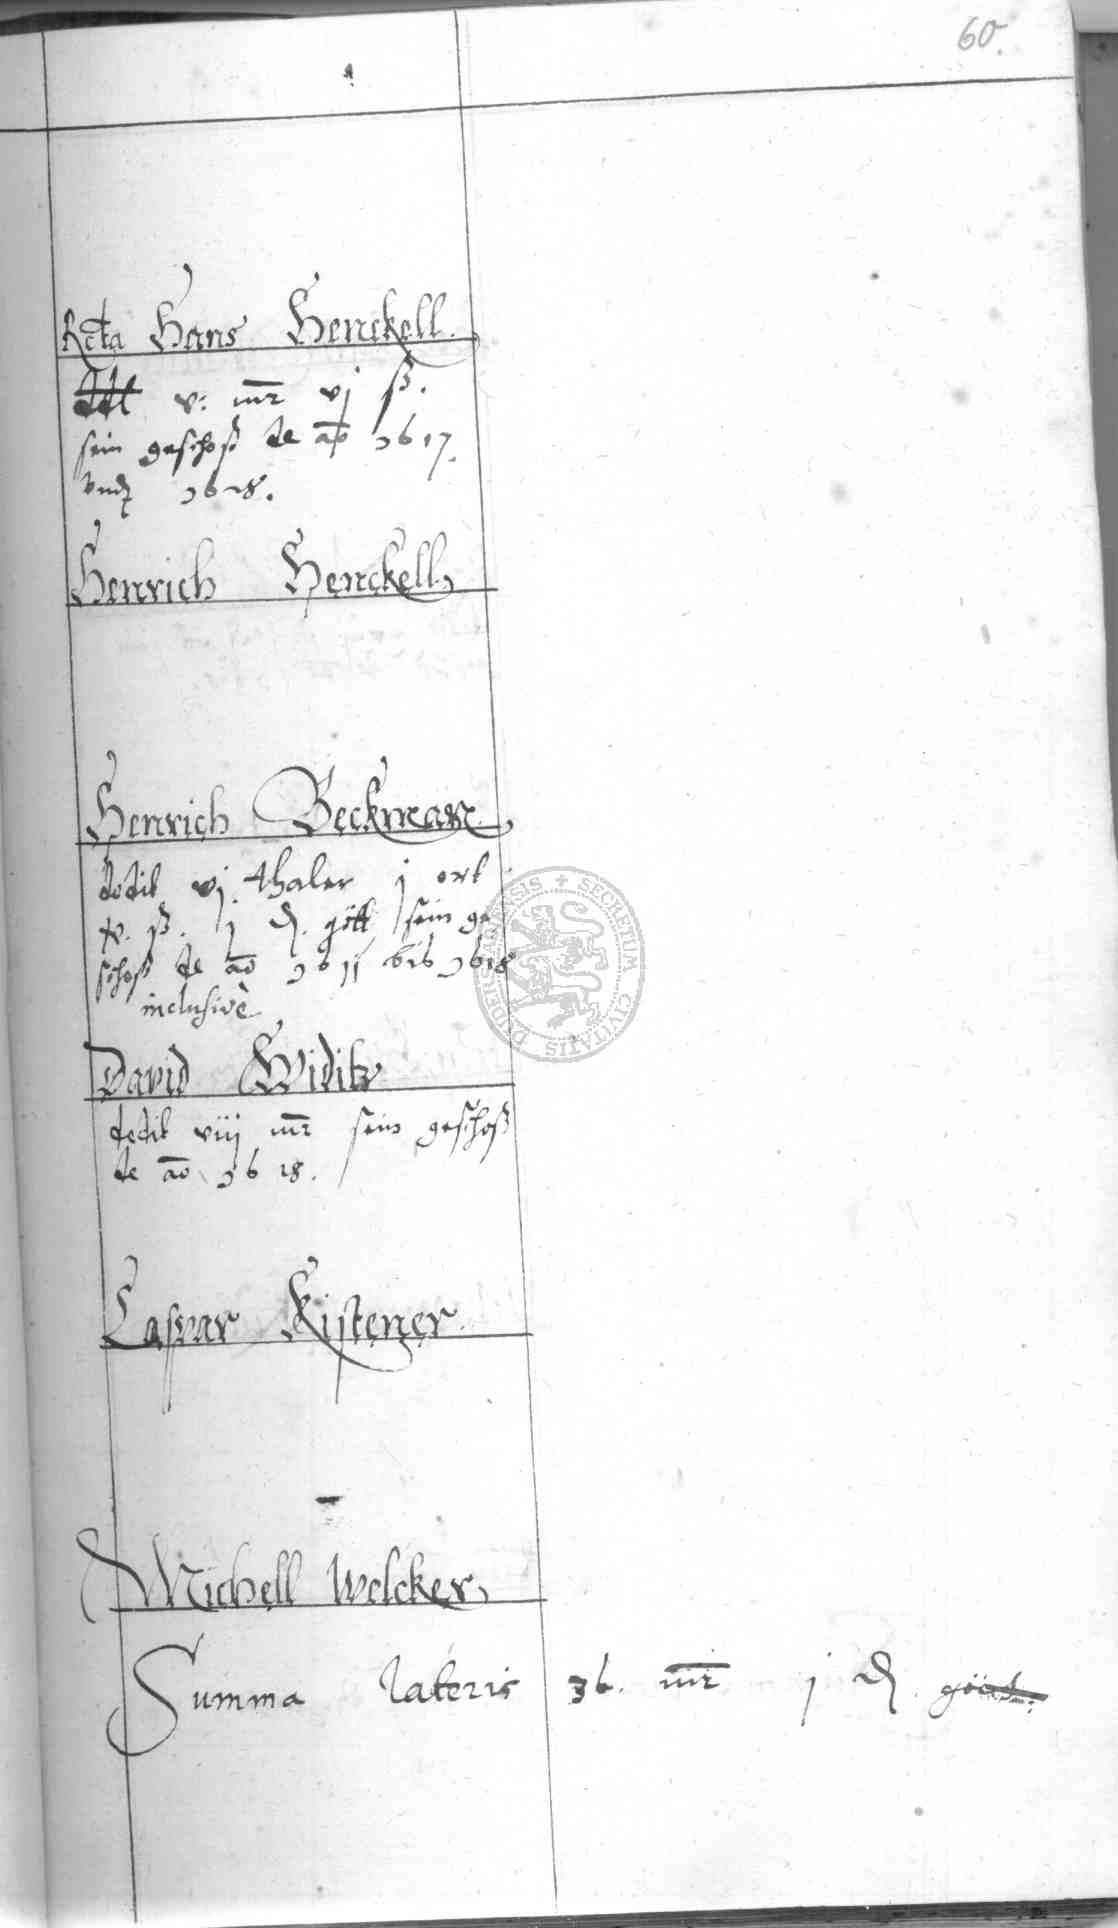 60.
Rcta Hans Henckell.
ddt v: mr vj ß.
sein geschoß de ao 1617.
vnd 1618.
Henrich Henckell
Henrich Beckman
dedit vj thaler j ort
x. ß. j d. gött sein ge
schoß de ao 1611 bis 1618
inclusivè
David Widitz
dedit viij mr sein geschoß
de ao 1618.
Caspar Kistener.
Michell Welcker
Summa lateris 36. mr j d.
SECRETUM CIVITATIS